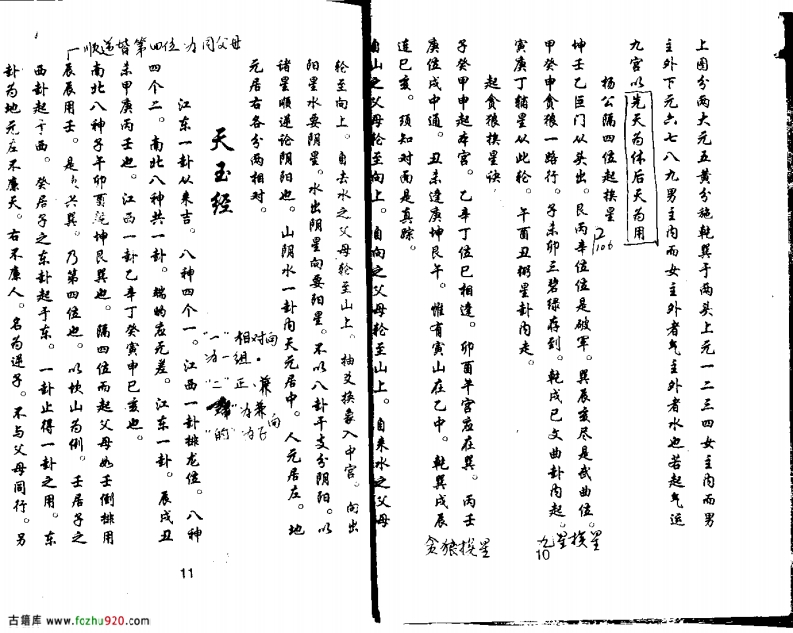 上图分两大元五黄分施乾巽于两头上元一二三四女主内而男
主外下元六七八九男主内而女主外者气主外者水也若起气运
九宫以先天为体后天为用
杨公隔四位起挨星
坤壬乙巨门从头出。艮丙辛位位是破军。巽辰亥尽是武曲位。
甲癸申贪狼一路行。子未卯三碧绿存到。乾戌巳文曲卦内起。
寅庚丁辅星从此轮。午酉丑弼星卦内走。
起贪狼挨星诀
子癸甲申起本宫。乙辛丁位巳相逢。卯酉午宫应在巽。丙壬
庚位戌中通。丑未逢庚坤艮午。惟有寅山在乙中。乾巽戌辰
连巳亥。须知对面是真踪。
自山之父母轮至向上。自向之父母轮至山上。自来水之父母
九星挨星
贪狼挨星
10
轮至向上。自去水之父母轮至山上。抽爻换象入中宫。向出
阳星水要阴星。水出阴星向要阳星。不以八卦干支分阴阳。以
诸星顺逆论阴阳也。山阴水一卦内天元居中。人元居左。地
元居右各分两相对。
天玉经
江东一卦从来吉。八神四个一。江西一卦排龙位。八神
四个二。南北八神共一卦。端的应无差。江东一卦。辰戌丑
未甲庚丙壬也。江西一卦乙辛丁癸寅申巳亥也。
南北八神子午卯酉乾坤艮巽也。隔四位而起父母如壬倒排用
辰辰用壬。是 巽。乃第四位也。以坎山为例。壬居子之
西卦起于西。癸居子之东卦起于东。一卦止得一卦之用。东
卦为地元应不廉天。右不廉人。名为逆子。不与父母同行。另
顺逆皆第四位为同父母
11
古籍库 www.fczhu920.com